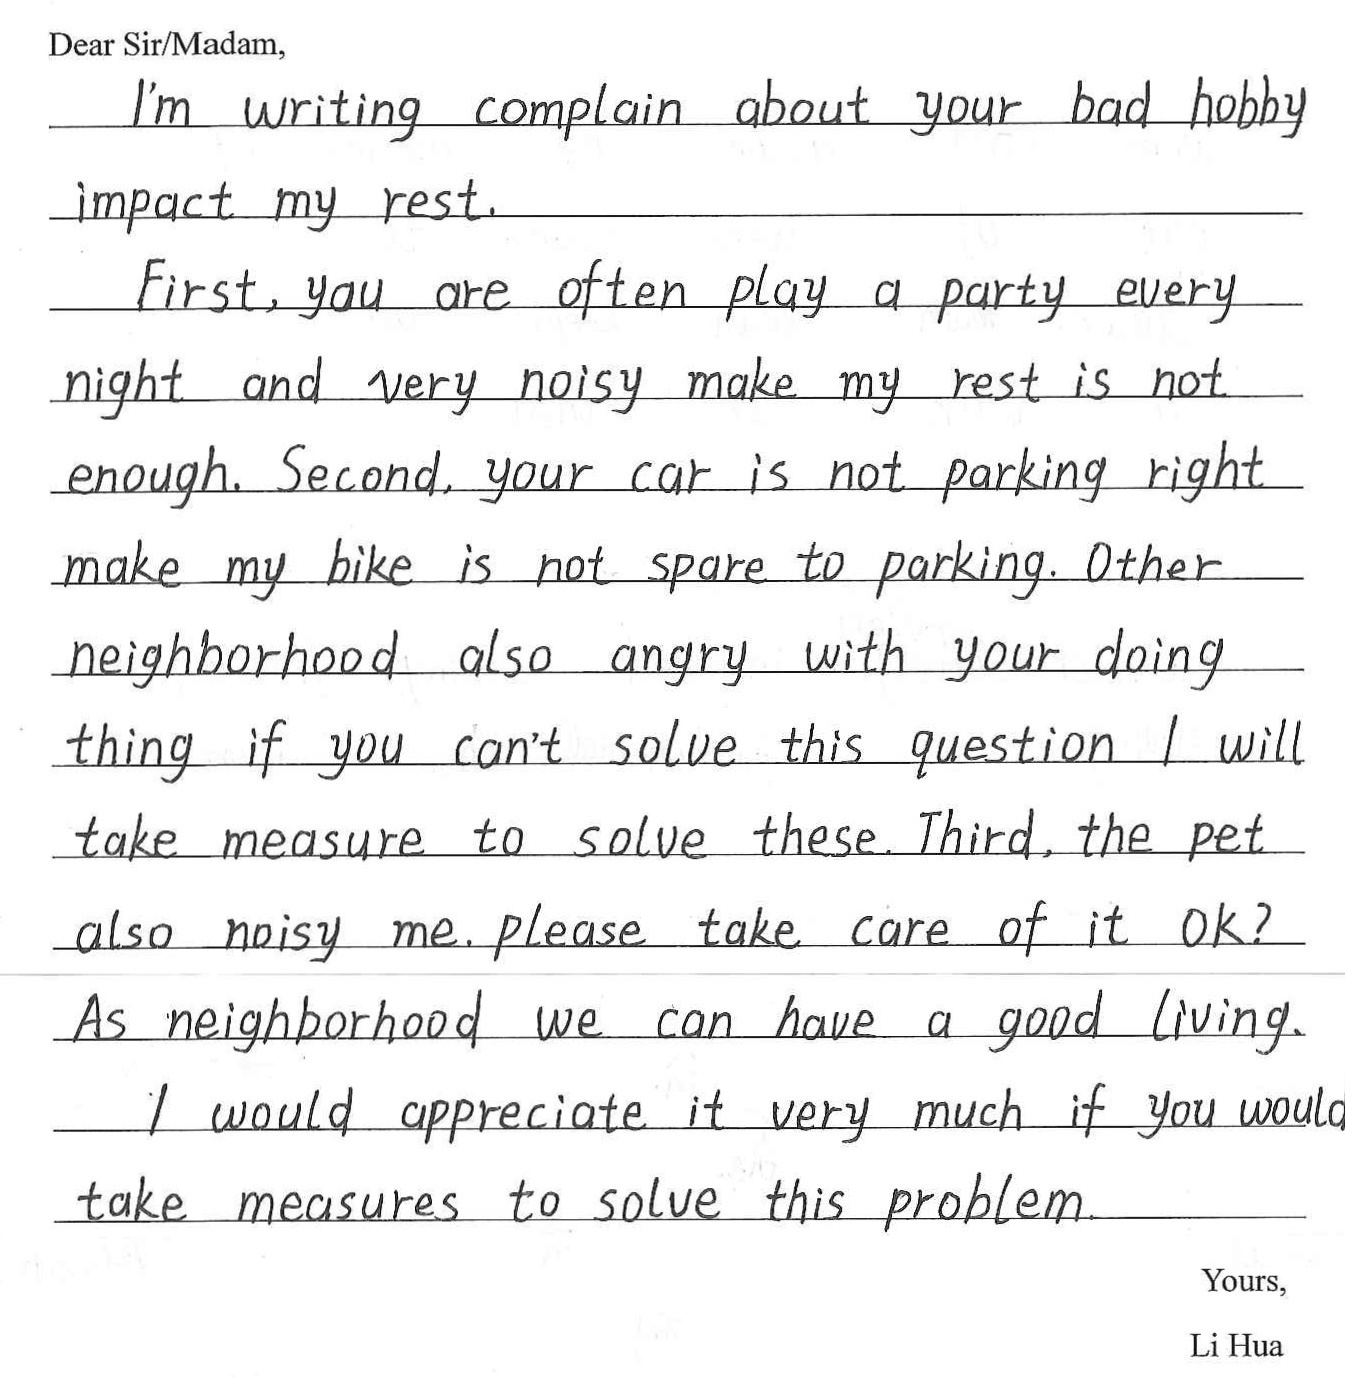 Dear Sir/Madam,
I'm writing complain about your bad hobby
impact my rest.
First, you are often play a party every
night and very noisy make my rest is not
enough. Second, your car is not parking right
make my bike is not spare to parking. Other
neighborhood also angry with your doing
thing if you can't solve this question I will
take measure to solve these. Third, the pet
also noisy me. please take care of it OK?
As neighborhood we can have a good living.
I would appreciate it very much if you would
take measures to solve this problem.
Yours,
Li Hua